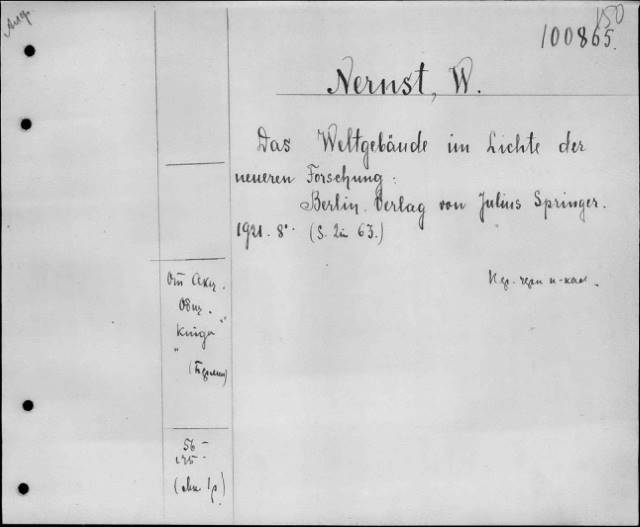 150
100865.
Nernst, W.
Das Weltgebäude im Lichte der
neueren Forschung:
Berlin. Verlag von Julius Springer.
1921. 8°. (S. 2 in 63.)
От Акц.
Общ.
"Книга"
(Берлин)
56